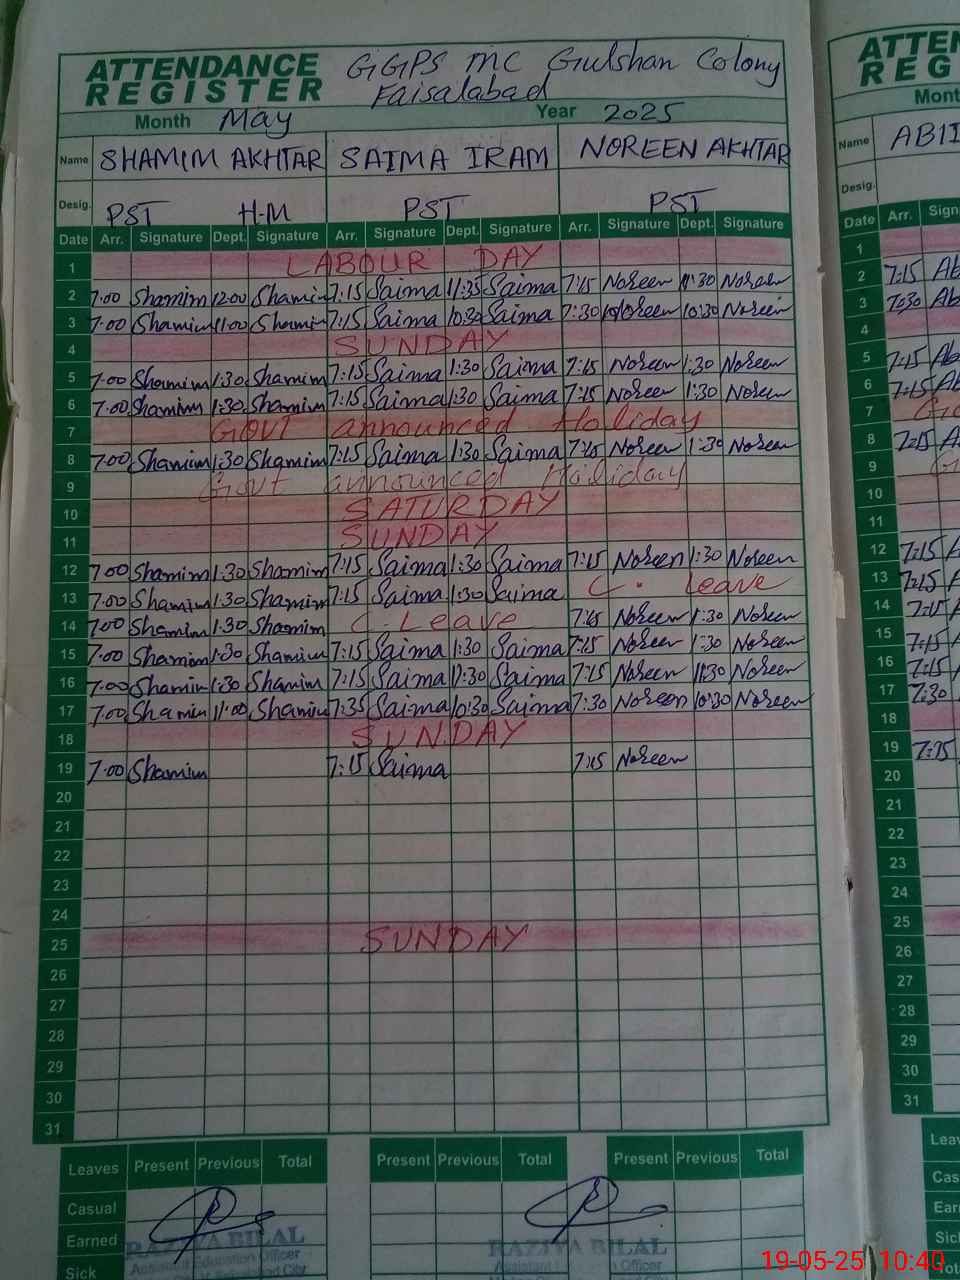 ATTENDANCE REGISTER GGPS MC Gulshan Colony Faisalabad
Month May Year 2025
Name SHAMIM AKHTAR SAIMA IRAM NOREEN AKHTAR
Desig. PST H-M PST PST
Date Arr. Signature Dept. Signature Arr. Signature Dept. Signature Arr. Signature Dept. Signature
1 LABOUR DAY
2 7:00 Shamim 12:00 Shamim 7:15 Saima 11:35 Saima 7:15 Noreen 11:30 Noreen
3 7:00 Shamim 11:00 Shamim 7:15 Saima 10:30 Saima 7:30 Noreen 10:30 Noreen
4 SUNDAY
5 7:00 Shamim 1:30 Shamim 7:15 Saima 1:30 Saima 7:15 Noreen 1:30 Noreen
6 7:00 Shamim 1:30 Shamim 7:15 Saima 1:30 Saima 7:15 Noreen 1:30 Noreen
7 GOVT announced Holiday
8 7:00 Shamim 1:30 Shamim 7:15 Saima 1:30 Saima 7:15 Noreen 1:30 Noreen
9 Govt announced Holiday
10 SATURDAY
11 SUNDAY
12 7:00 Shamim 1:30 Shamim 7:15 Saima 1:30 Saima 7:15 Noreen 1:30 Noreen
13 7:00 Shamim 1:30 Shamim 7:15 Saima 1:30 Saima C. leave
14 7:00 Shamim 1:30 Shamim C. Leave 7:15 Noreen 1:30 Noreen
15 7:00 Shamim 1:30 Shamim 7:15 Saima 1:30 Saima 7:15 Noreen 1:30 Noreen
16 7:00 Shamim 1:30 Shamim 7:15 Saima Saima 7:15 Noreen 11:30 Noreen
17 7:00 Shamim 11:00 Shamim 7:35 Saima 10:30 Saima 7:30 Noreen 10:30 Noreen
18 SUNDAY
19 7:00 Shamim 7:15 Saima 7:15 Noreen
20
21
22
23
24
25 SUNDAY
26
27
28
29
30
31
Leaves Present Previous Total Present Previous Total Present Previous Total
Casual
Earned
Sick
RAZIYA BILAL
Assistant Education Officer
City
RAZIYA BILAL
Assistant Officer
ATTEN
REG
Mont
Name ABII
Desig.
Date Arr. Sign
1
2 7:15 Ab
3 7:30 Ab
4
5 7:15 Ab
6 7:15 Ab
7
8 7:15 A
9
10
11
12 7:15 A
13 7:15 A
14 7:15
15 7:15
16 7:15
17 7:30
18
19 7:15
20
21
22
23
24
25
26
27
28
29
30
31
Lea
Cas
Ear
Sic
19-05-25 10:40